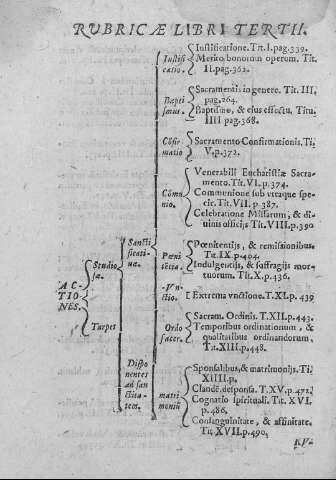 RUBRICÆ LIBRI TERTII.
Iustifi
catio.
Iustificatione. Tit. I. pag. 339.
Merito bonorum operum. Tit.
II. pag. 362.
Bapti
smus.
Sacramentis in genere. Tit. III,
pag. 264.
Baptismo, & eius effectu. Titu.
IIII pag. 368.
Cōfir
matio
Sacramento Confirmationis. Ti.
V. p. 372.
Cōmu
nio.
Venerabili Eucharistiæ Sacra-
mento. Tit. VI. p. 374.
Communione sub vtraque spe-
cie. Tit. VII. p. 387.
Celebratione Missarum, & di-
uinis officijs Tit. VIII. p. 390
Pœni
tētia.
Pœnitentijs, & remissionibus.
Tit. IX p. 404.
Indulgentijs, & suffragijs mor-
tuorum. Tit. X. p. 436.
Vn-
ctio.
Extrema vnctione. T. XI. p. 439
Ordo
sacer.
Sacram. Ordinis. T. XII. p. 443.
Temporibus ordinationum, &
qualitatibus ordinandorum,
Tit. XIII. p. 448.
matri
moniū
Sponsalibus, & matrimonijs. Ti.
XIIII. p.
Clandē. desponsa. T. XV. p. 472.
Cognatio spirituali. Tit. XVI.
p. 486.
Consanguinitate, & affinitate.
Tit. XVII. p. 490.
Sancti
ficatiuæ.
Dispo
nentes
ad san
ctita-
tem.
Studio
sæ.
Turpes
ACTIONES.